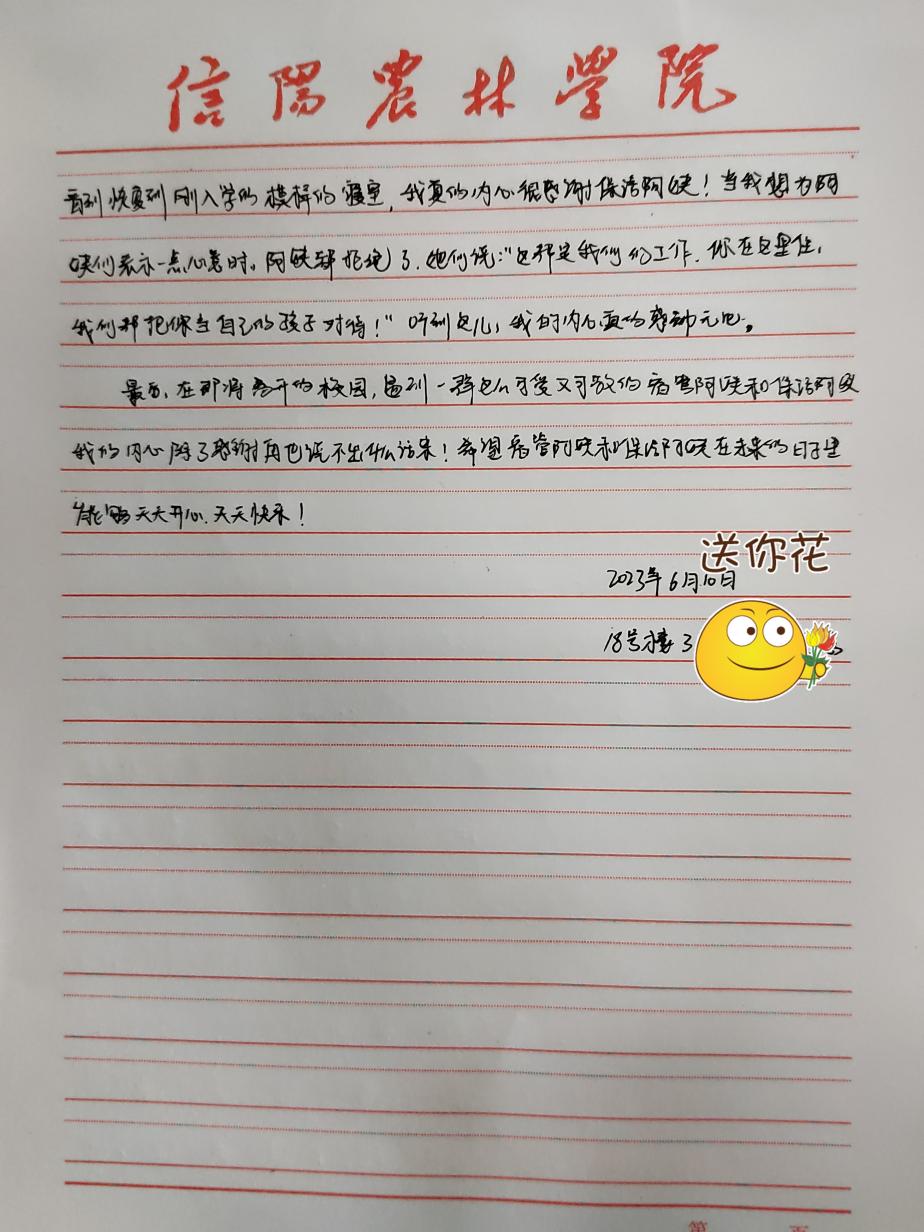 信陽農林學院
看到恢复到刚入学的模样的寝室，我真的内心很感谢保洁阿姨！当我想为阿
姨们表示一点心意时，阿姨都拒绝了，她们说："这都是我们的工作，你在这里住，
我们都把你当自己的孩子对待！"听到这儿，我的内心真的感动无比。
最后，在即将离开的校园，遇到一群这么可爱又可敬的宿管阿姨和保洁阿姨
我的内心除了感谢再也说不出什么话来！希望宿管阿姨和保洁阿姨在未来的日子里
能够天天开心、天天快乐！
送你花
2023年6月10日
18号楼3
第 页